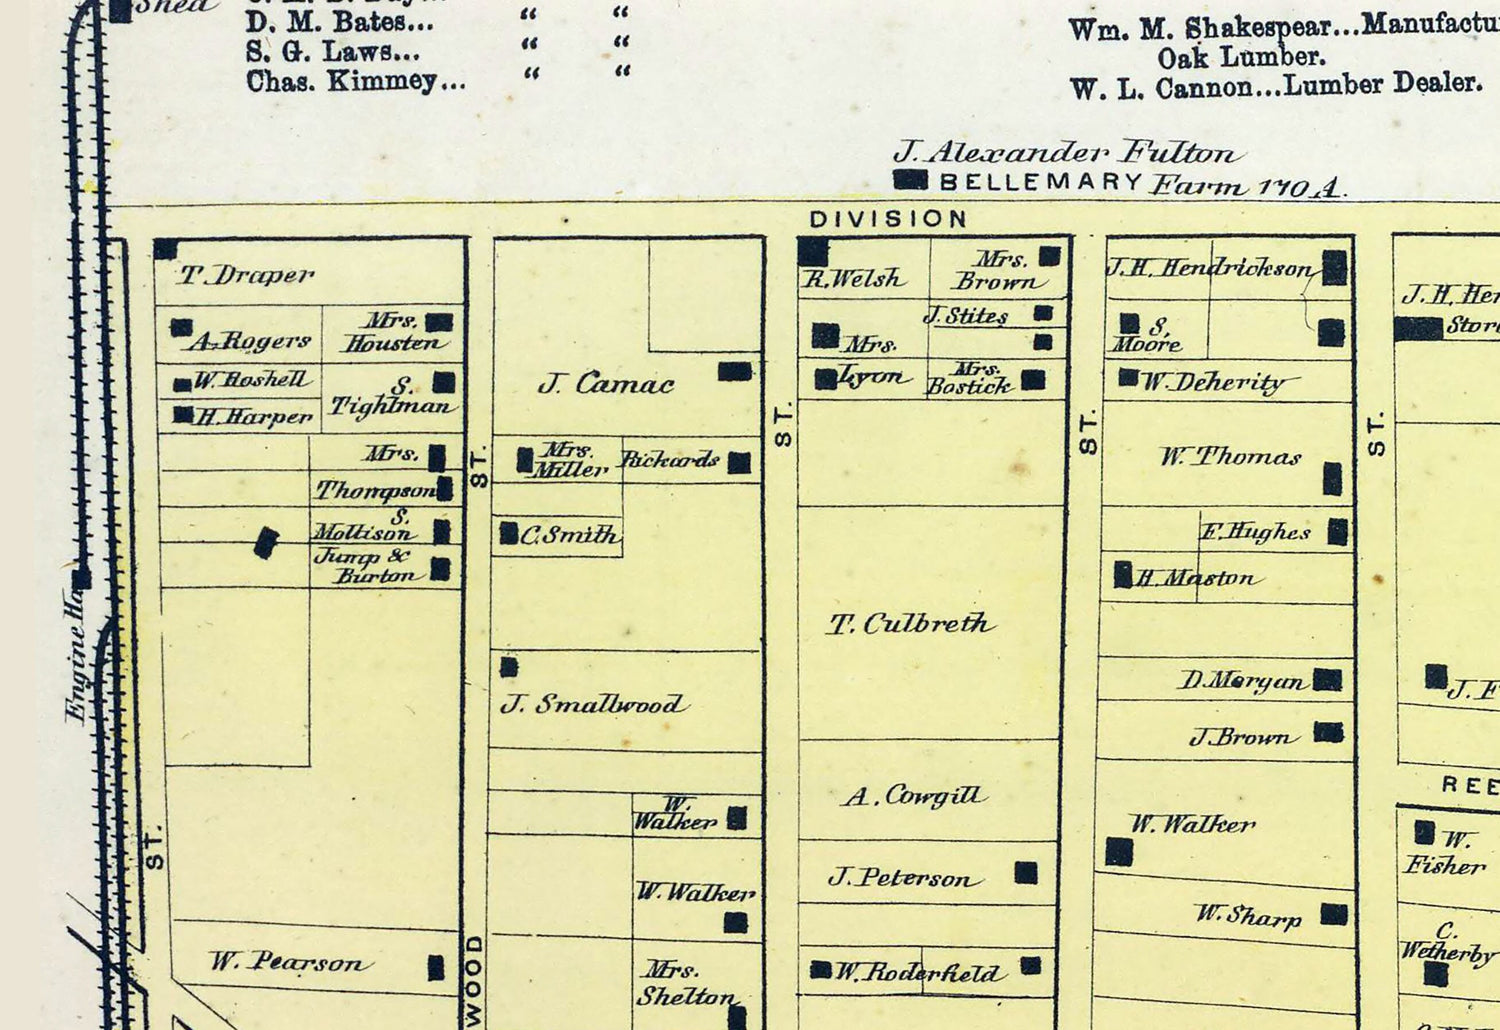 Shed
D. M. Bates... " "
S. G. Laws... " "
Chas. Kimmey... " "
Wm. M. Shakespear...Manufactu
Oak Lumber.
W. L. Cannon...Lumber Dealer.
J. Alexander Fulton
BELLEMARY Farm 170 A.
DIVISION
T. Draper
A. Rogers
Mrs.
Housten
W. Roshell
H. Harper
S.
Tightman
Mrs.
Thompson
S.
Mollison
Jump &
Burton
Engine Ho
ST.
W. Pearson
ST.
WOOD
J. Camac
Mrs.
Miller
Rickards
C. Smith
J. Smallwood
W.
Walker
W. Walker
Mrs.
Shelton
ST.
R. Welsh
Mrs.
Brown
J. Stites
Mrs.
Lyon
Mrs.
Bostick
T. Culbreth
A. Cowgill
J. Peterson
W. Roderfield
ST.
J. H. Hendrickson
S.
Moore
W. Deherity
W. Thomas
F. Hughes
H. Maston
D. Morgan
J. Brown
W. Walker
W. Sharp
ST.
J. H. Her
Stor
J. F
REE
W.
Fisher
C.
Wetherby